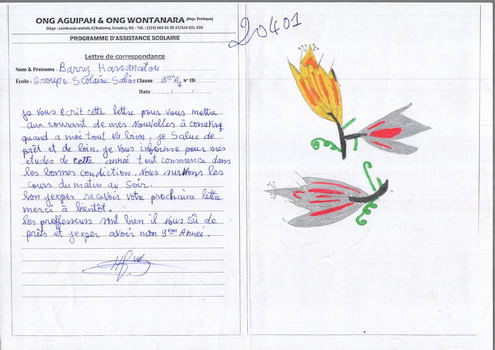 ONG AGUIPAH & ONG WONTANARA (Rep. Tchèque)
Siège : Lambanyi-warish, C/Ratoma, Conakry, RG - Tél. : (224) 664 35 29 37/624 031 534
PROGRAMME D'ASSISTANCE SCOLAIRE
20401
Lettre de correspondance
Nom & Prénoms : Barry Hassanatou
École : Groupe Scolaire Classe N° ID:
Date
je vous ecrit cette lettre pour vous mettre
aux courant de mes Nouvelles à conakry
quand a moi tout va bien, je Salue de
prêt et de loin. je vous informe pour mes
etudes de cette année tout commence dans
les bonnes condiction. Nous suivons les
Cours du matin au Soir.
bon j'esper recevoir votre prochaine lettre
merci à bientôt.
les proffesseurs sont bien il vous
près et j'esper avoir mon 9ème Année.